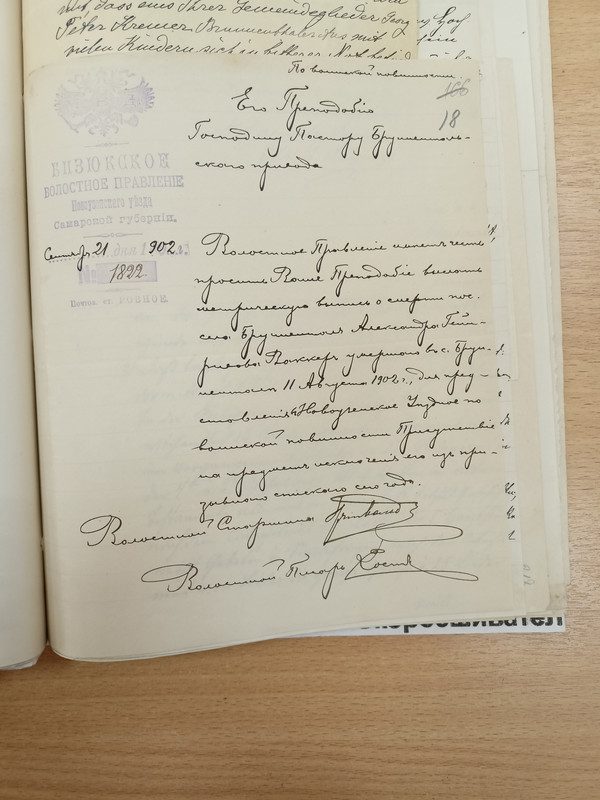 mit, dass eins Ihrer Gemeindeglieder Georg
Peter Kremer, Brunnenthal
vielen Kindern sich in bitterer Not
По воинской повинности.
166
18
Его Преподобію
Господину Пастору Бруненталь-
скаго прихода
БИЗЮКСКОЕ
ВОЛОСТНОЕ ПРАВЛЕНІЕ
Новоузенскаго уѣзда
Самарской губерніи.
Сентября 21 дня 1902 г.
№ 1822.
Почтов. ст. РОВНОЕ
Волостное Правленіе имѣетъ честь
просить Ваше Преподобіе выслать
метрическую выпись о смерти пос.
села Брунненталь Александра Гейн-
рихова Ваккеръ умершаго въ с. Брун-
ненталь 11 Августа 1902 г., для пред-
ставленія въ Новоузенское Уѣздное по
воинской повинности Присутствіе
на предметъ исключенія его изъ при-
зывнаго списка сего года.
Волостной Старшина
Волостной Писарь
скоросшивател